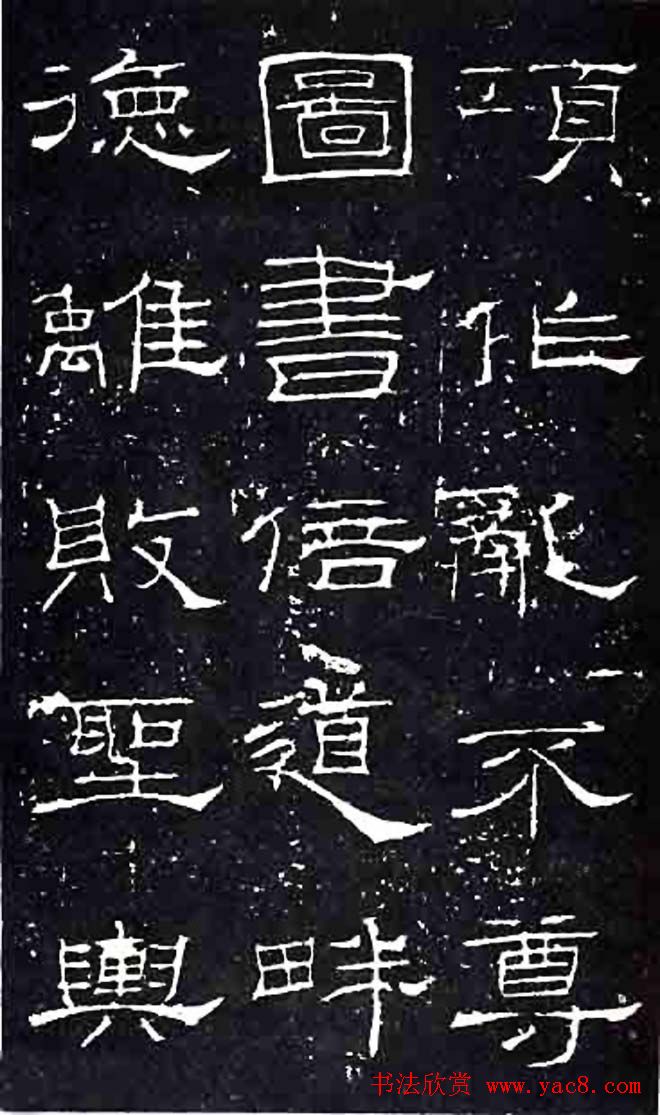 項作亂不尊
圖書倍道畔
德離敗聖輿
书法欣赏 www.yac8.com